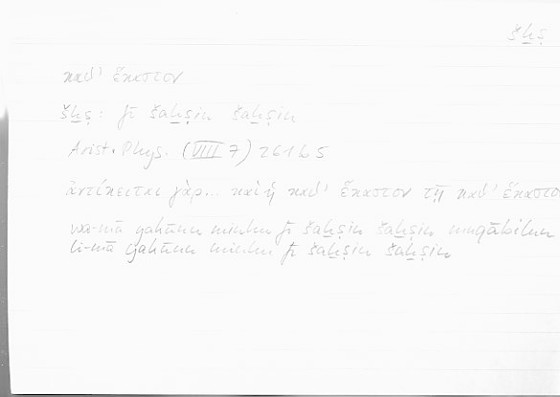 šḫṣ
καθ' ἕκαστον
šḫṣ: fī šaḫṣin šaḫṣin
Arist. Phys. (VIII 7) 261b5
ἀντίκειται γὰρ... καὶ ἡ καθ' ἕκαστον τῇ καθ' ἕκαστον
wa-mā yakūnu minhu fī šaḫṣin šaḫṣin muqābilun
li-mā yakūnu minhu fī šaḫṣin šaḫṣin